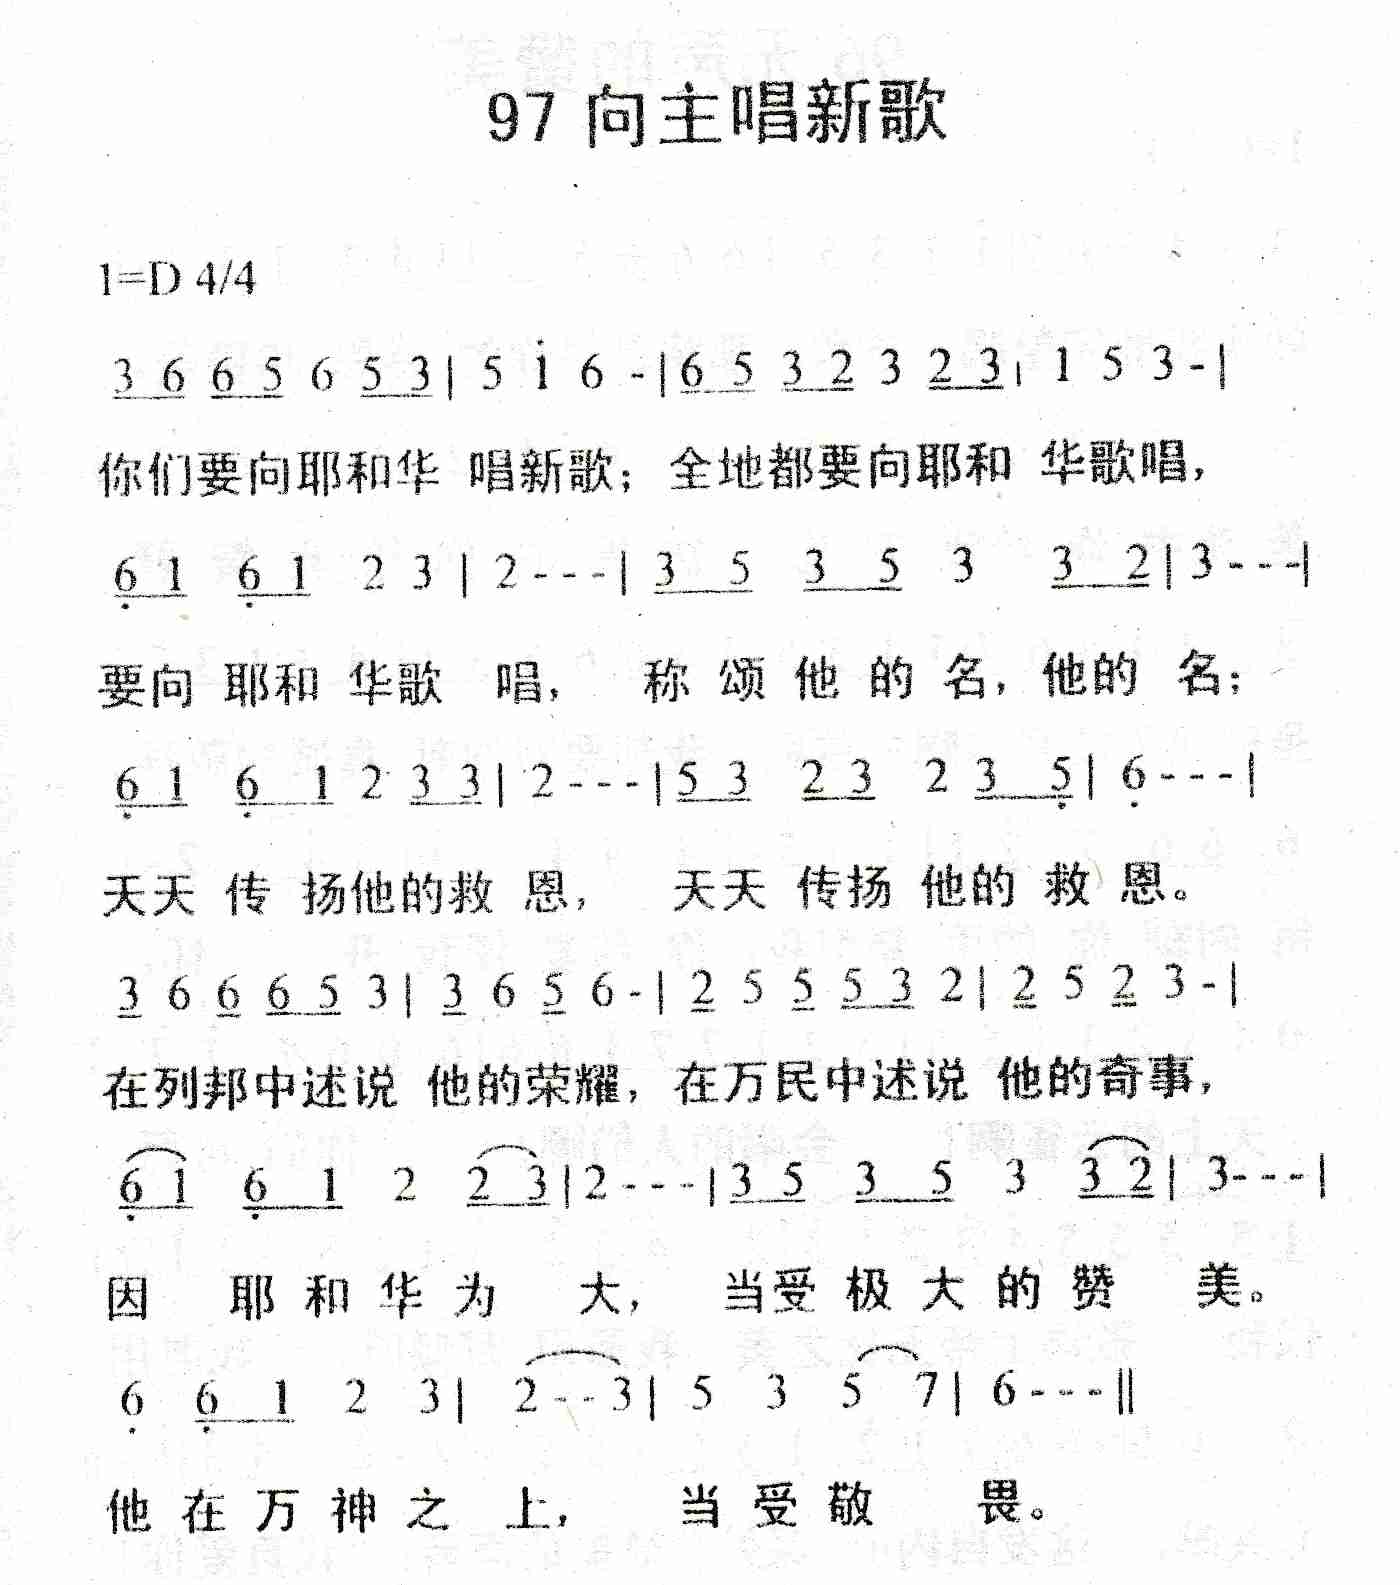 97 向主唱新歌
1=D 4/4
3 6 6 5 6 5 3 | 5 i 6 - | 6 5 3 2 3 2 3 | 1 5 3 - |
你们要向耶和华 唱新歌；全地都要向耶和 华歌唱，
6 1 6 1 2 3 | 2 - - - | 3 5 3 5 3 3 2 | 3 - - - |
要向 耶和 华歌 唱， 称 颂 他 的 名，他的 名；
6 1 6 1 2 3 3 | 2 - - - | 5 3 2 3 2 3 5 | 6 - - - |
天天 传 扬他的救 恩， 天天 传扬 他的 救 恩。
3 6 6 6 5 3 | 3 6 5 6 - | 2 5 5 5 3 2 | 2 5 2 3 - |
在列邦中述说 他的荣耀，在万民中述说 他的奇事，
6 1 6 1 2 2 3 | 2 - - - | 3 5 3 5 3 3 2 | 3 - - - |
因 耶 和 华 为 大， 当受 极 大 的 赞 美。
6 6 1 2 3 | 2 - - 3 | 5 3 5 7 | 6 - - - ‖
他 在 万 神 之 上， 当 受 敬 畏。